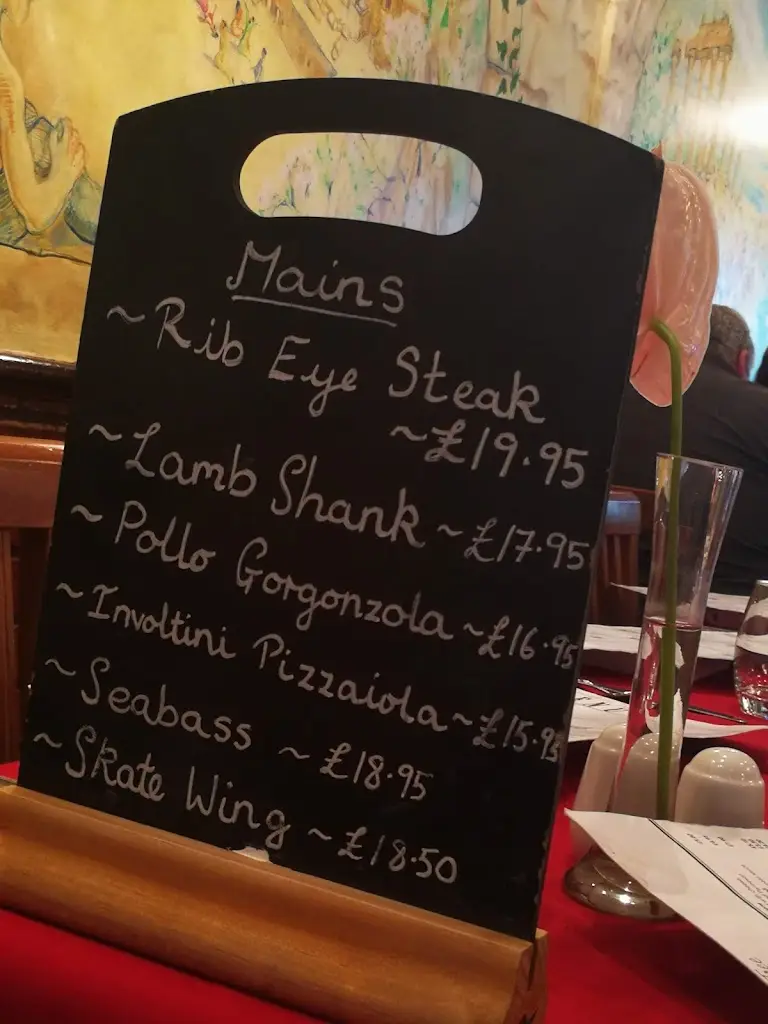 Mains
~ Rib Eye Steak
~£19.95
~ Lamb Shank ~ £17.95
~ Pollo Gorgonzola ~ £16.95
~ Involtini Pizzaiola ~ £15.95
~ Seabass ~ £18.95
~ Skate Wing ~ £18.50